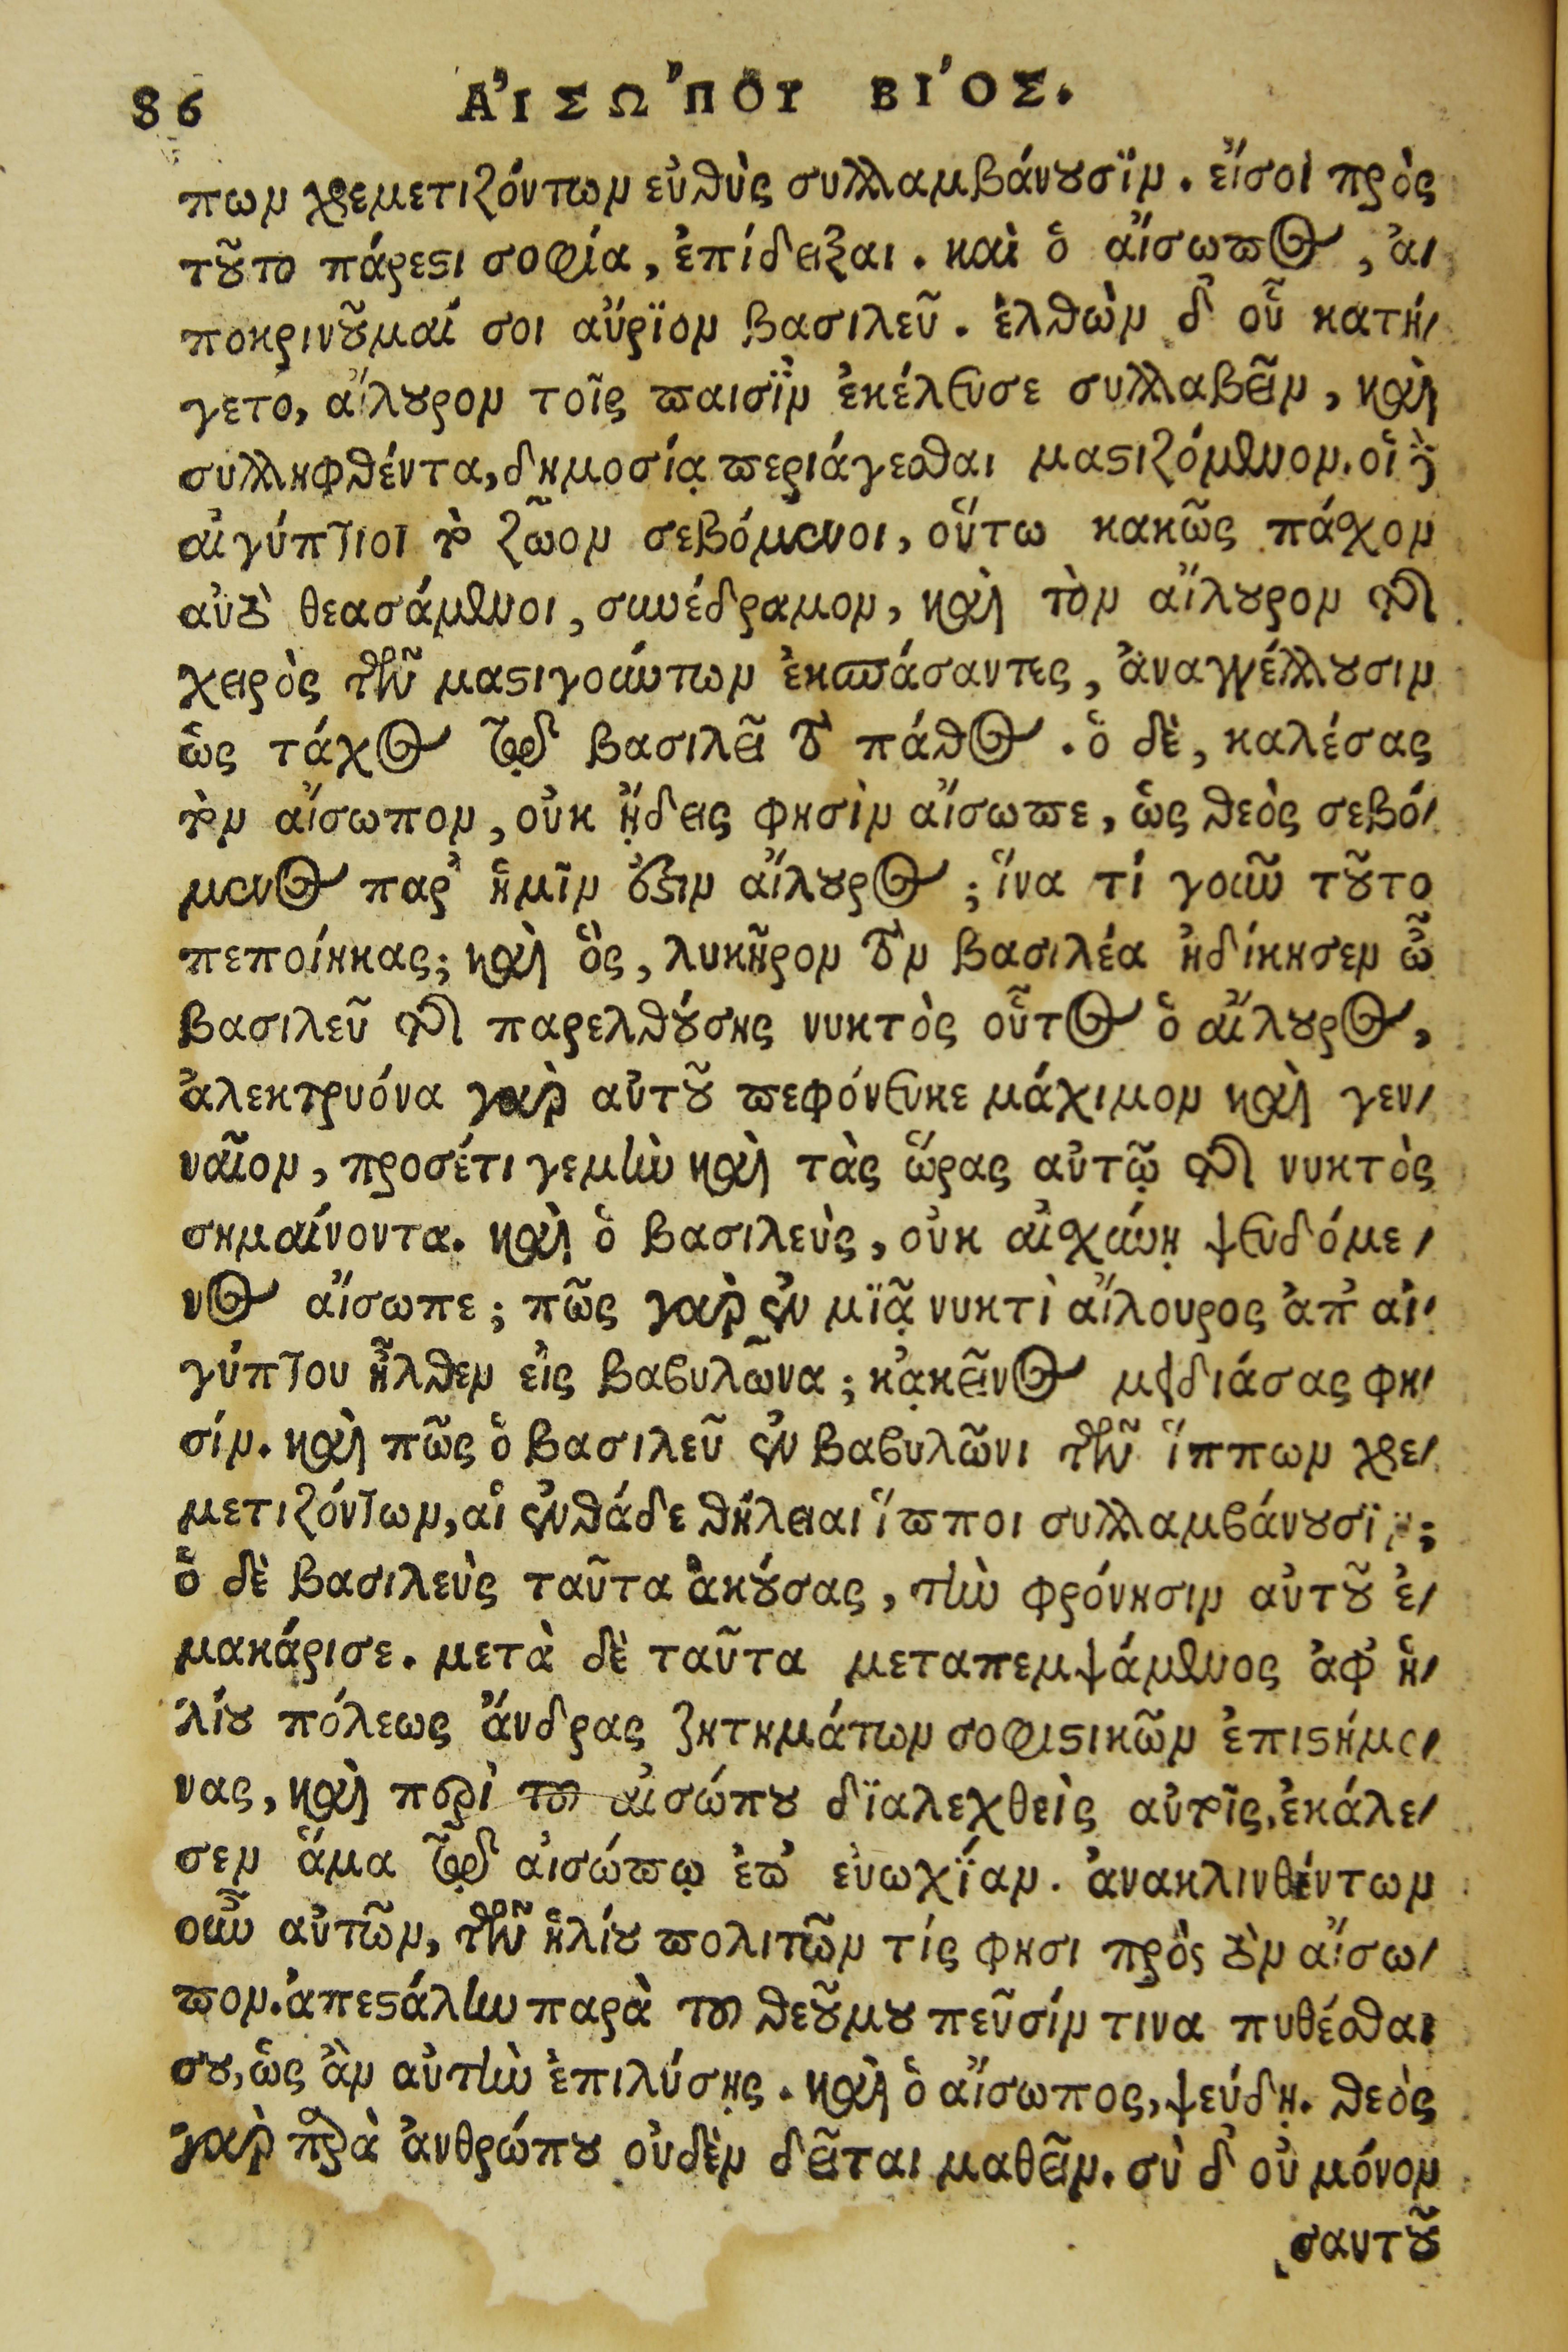 86 ΑἸΣΩ´ΠΟΥ ΒΙ´ΟΣ.
πων χρεμετιζόντων εὐθὺς συλλαμβάνουσϊν. εἴσοι πρὸς
τοῦτο πάρεστι σοφία, ἐπίδειξαι. καὶ ὁ αἴσωπος, ἀ-
ποκρινοῦμαί σοι αὔρϊον βασιλεῦ. ἐλθὼν δ' οὖ κατή-
γετο, αἴλουρον τοῖς παισῒν ἐκέλευσε συλλαβεῖν, καὶ
συλληφθέντα, δημοσίᾳ περιάγεσθαι μαστιζόμενον. οἱ δὲ
αἰγύπτιοι τὸ ζῶον σεβόμενοι, οὕτω κακῶς πάσχον
αὐτὸ θεασάμενοι, συνέδραμον, καὶ τὸν αἴλουρον τῆς
χειρὸς τῶν μαστιγούντων ἐκσπάσαντες, ἀναγγέλλουσιν
ὡς τάχος τῷ βασιλεῖ τὸ πάθος. ὁ δὲ, καλέσας
τὸν αἴσωπον, οὐκ ᾔδεις φησὶν αἴσωπε, ὡς θεὸς σεβό-
μενος παρ' ἡμῖν ὅστιν αἴλουρος; ἵνα τί γοῦν τοῦτο
πεποίηκας; καὶ ὃς, λυκῆρον τὸν βασιλέα ἠδίκησεν ὦ
βασιλεῦ τῆς παρελθούσης νυκτὸς οὗτος ὁ αἴλουρος,
ἀλεκτρυόνα γὰρ αὐτοῦ πεφόνευκε μάχιμον καὶ γεν-
ναῖον, προσέτι γεμὴν καὶ τὰς ὥρας αὐτῷ τῆς νυκτὸς
σημαίνοντα. καὶ ὁ βασιλεὺς, οὐκ αἰσχύνῃ ψευδόμε-
νος αἴσωπε; πῶς γὰρ ἐν μϊᾷ νυκτὶ αἴλουρος ἀπ' αἰ-
γύπτου ἦλθεν εἰς βαβυλῶνα; κᾀκεῖνος μειδιάσας φη-
σίν. καὶ πῶς ὁ βασιλεῦ ἐν βαβυλῶνι τῶν ἵππων χρε-
μετιζόντων, αἱ ἐνθάδε θήλειαι ἵπποι συλλαμβάνουσϊν;
ὁ δὲ βασιλεὺς ταῦτα ἀκούσας, τὴν φρόνησιν αὐτοῦ ἐ-
μακάρισε. μετὰ δὲ ταῦτα μεταπεμψάμενος ἀφ' ἡ-
λίου πόλεως ἄνδρας ζητημάτων σοφιστικῶν ἐπιστήμο-
νας, καὶ περὶ τοῦ αἰσώπου δϊαλεχθεὶς αὐτοῖς, ἐκάλε-
σεν ἅμα τῷ αἰσώπῳ ἐπ' εὐωχΐαν. ἀνακλινθέντων
οὖν αὐτῶν, τῶν ἡλίου πολιτῶν τίς φησι πρὸς τὸν αἴσω-
πον. ἀπεστάλην παρὰ τοῦ θεοῦμου πεῦσίν τινα πυθέσθαι
σου, ὡς ἂν αὐτὴν ἐπιλύσῃς. καὶ ὁ αἴσωπος, ψεύδῃ. θεὸς
γὰρ παρὰ ἀνθρώπου οὐδὲν δεῖται μαθεῖν. σὺ δ' οὐ μόνον
σαυτοῦ